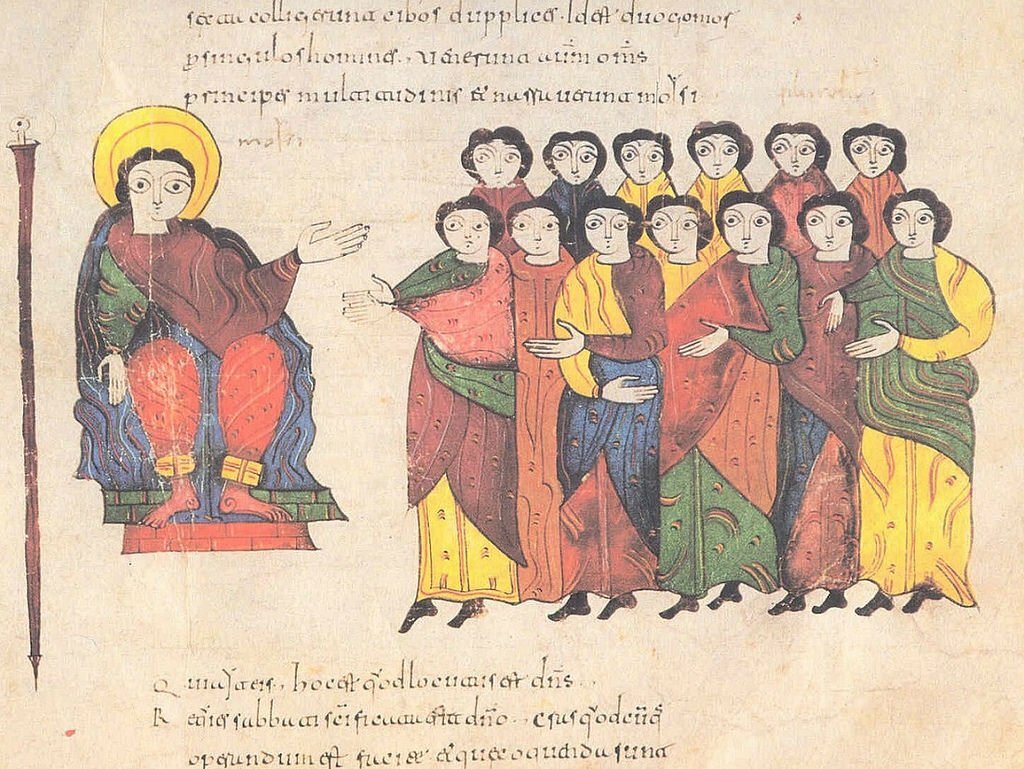 sexta collegerunt cibos dupplices. Idest duo gomor
p singulos homines. Venerunt autm oms
principes multitudinis et narraverunt moysi
moisi
Qui ayt eis. hoc est qod locutus est dns.
Requies sabbati scificata est dno. cras qodcuq
operandum est facite et que coquenda sunt